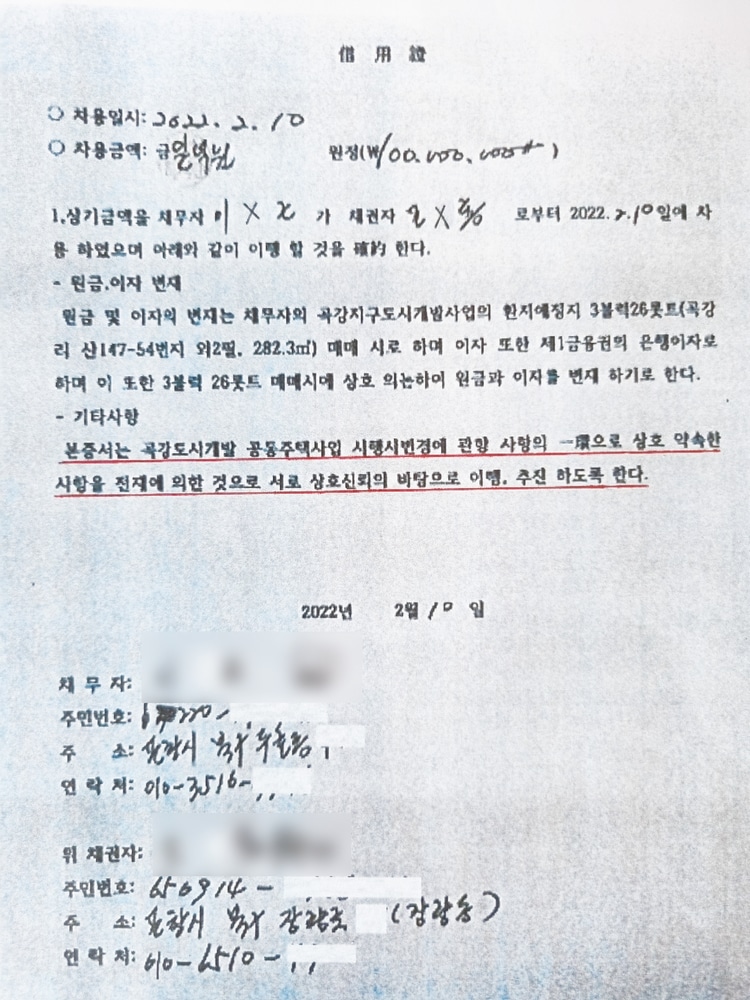 借 用 證
○ 차용일시: 2022. 2. 10
○ 차용금액: 금일억원 원정(₩100,000,000#)
1.상기금액을 채무자 이 X X 가 채권자 X 로부터 2022.2.10일에 차
용 하였으며 아래와 같이 이행 할 것을 確約 한다.
- 원금.이자 변재
원금 및 이자의 변재는 채무자의 곡강지구도시개발사업의 환지예정지 3블럭26롯트(곡강
리 산147-54번지 외2필, 282.3㎡) 매매 시로 하며 이자 또한 제1금융권의 은행이자로
하며 이 또한 3블럭 26롯트 매매시에 상호 의논하이 원금과 이자를 변재 하기로 한다.
- 기타사항
본증서는 곡강도시개발 공동주택사업 시행사변경에 관항 사항의 一環으로 상호 약속한
사항을 전재에 의한 것으로 서로 상호신뢰의 바탕으로 이행, 추진 하도록 한다.
2022년 2월 10 일
채 무 자:
주민번호:
주 소: 포항시 북구
연 락 처: 010-3516-
위 채권자:
주민번호: 650914 -
주 소: 포항시 북구 장량로 (장량동)
연 락 처: 010-6510-